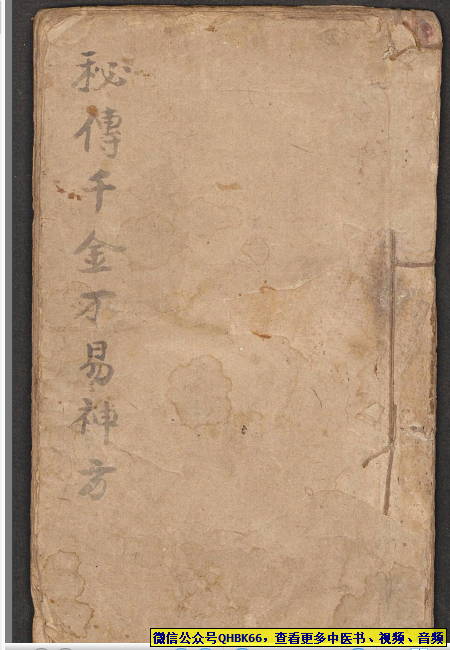 秘傳千金不易神方
微信公众号QHBK66，查看更多中医书、视频、音频